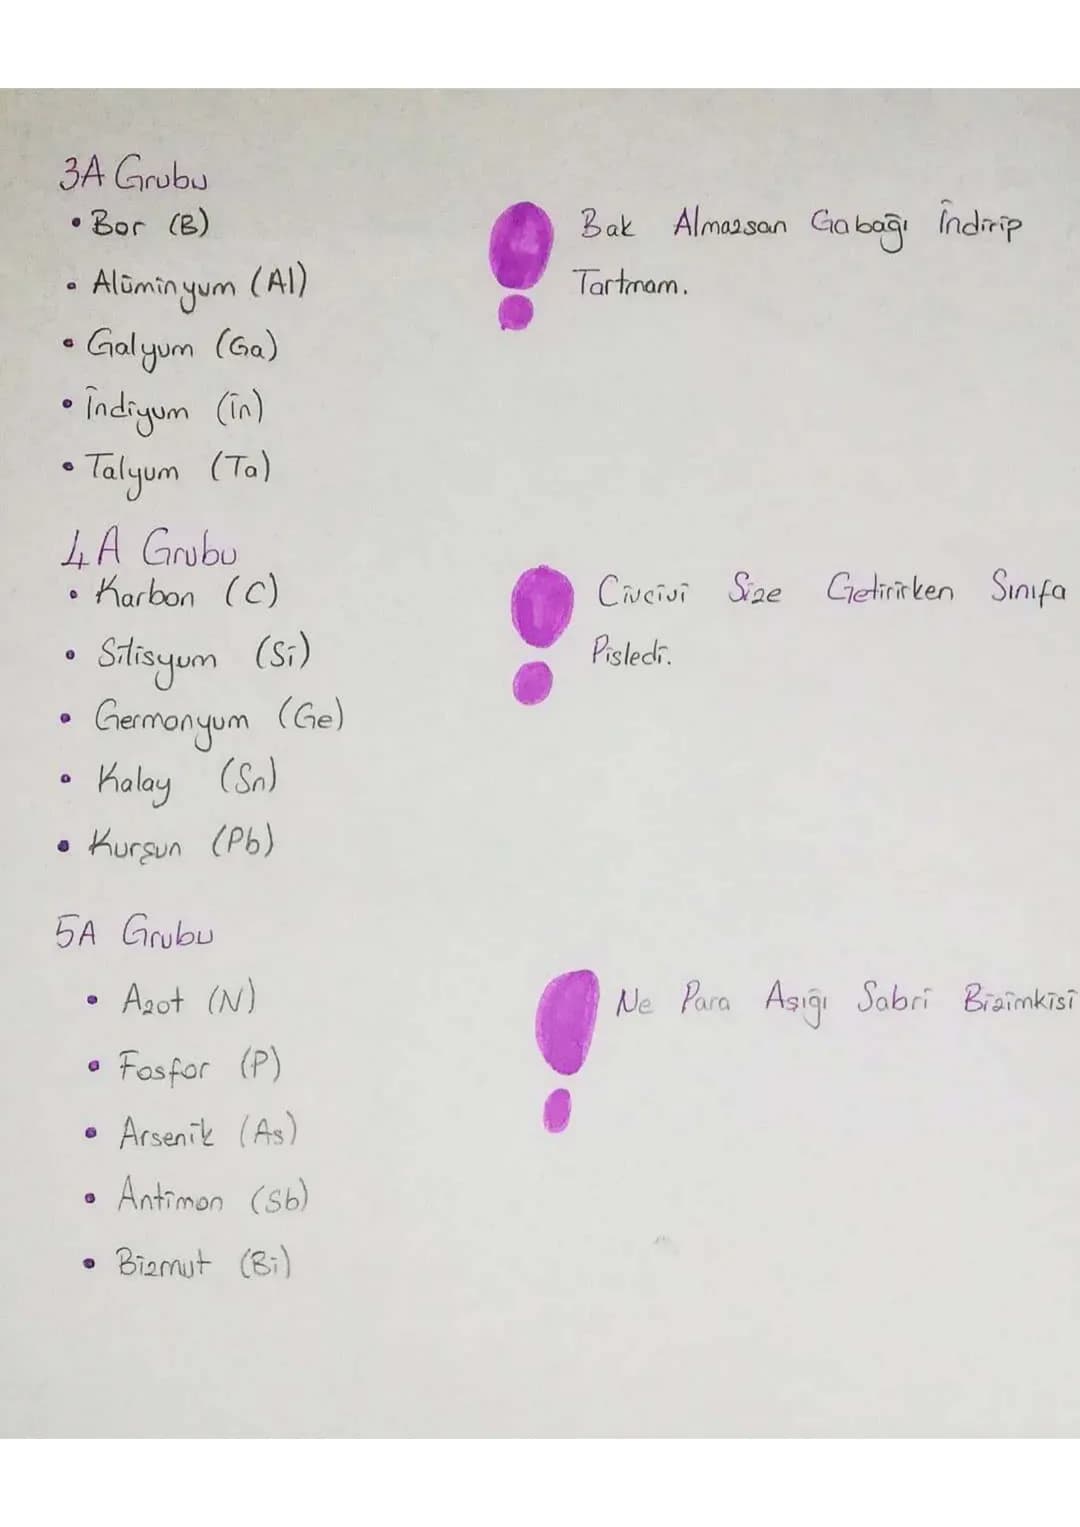 3A Grubu
• Bor (B)
Bak Almazsan Gabağı İndirip
• Alüminyum (Al)
Tartmam.
• Galyum (Ga)
• İndiyum (İn)
• Talyum (Ta)
4A Grubu
• Karbon (C)
Civcivi Size Getirirken Sınıfa
• Silisyum (Si)
Pisledi.
• Germanyum (Ge)
• Kalay (Sn)
• Kurşun (Pb)
5A Grubu
• Azot (N)
Ne Para Aşığı Sabri Bizimkisi
• Fosfor (P)
• Arsenik (As)
• Antimon (Sb)
• Bizmut (Bi)